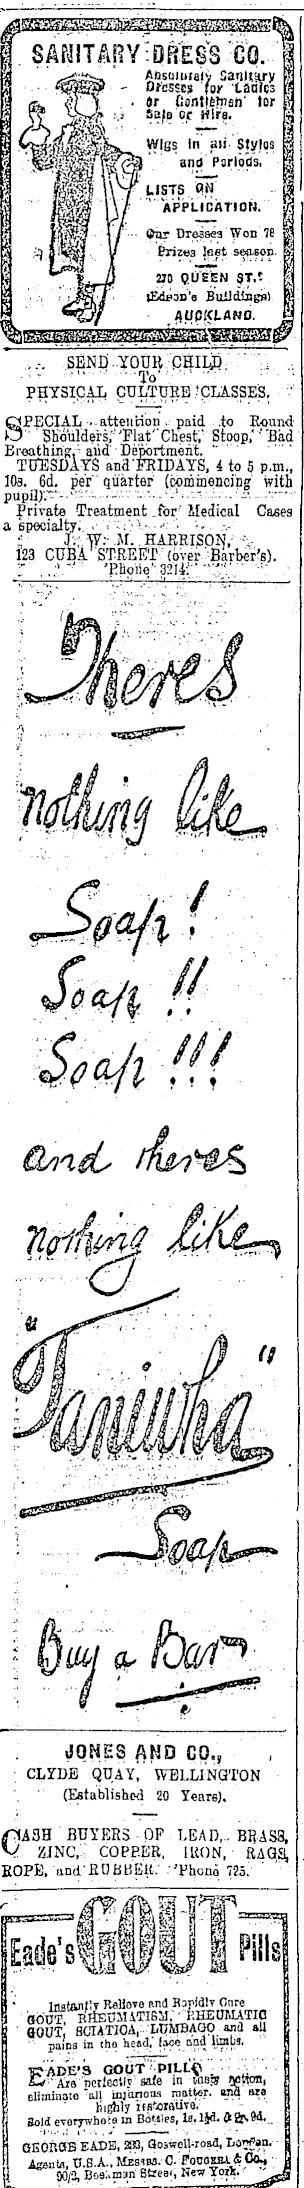 SANITARY DRESS CO.
Absolutely Sanitary
Dresses for Ladies
or Gentlemen for
Sale or Hire.
Wigs in all Styles
and Periods.
LISTS ON
APPLICATION.
Our Dresses Won 78
Prizes last season.
270 QUEEN ST.
(Edson's Buildings)
AUCKLAND.
SEND YOUR CHILD
To
PHYSICAL CULTURE CLASSES.
SPECIAL attention paid to Round
Shoulders, Flat Chest, Stoop, Bad
Breathing, and Deportment.
TUESDAYS and FRIDAYS, 4 to 5 p.m.,
10s. 6d. per quarter (commencing with
pupil).
Private Treatment for Medical Cases
a specialty.
J. W. M. HARRISON,
123 CUBA STREET (over Barber's).
'Phone 3214.
Theres
nothing like
Soap!
Soap!!
Soap!!!
and theres
nothing like
"Taniwha"
Soap
Buy a Bar
JONES AND CO.,
CLYDE QUAY, WELLINGTON
(Established 20 Years).
CASH BUYERS OF LEAD, BRASS,
ZINC, COPPER, IRON, RAGS,
ROPE, and RUBBER. 'Phone 725.
Eade's GOUT Pills
Instantly Relieve and Rapidly Cure
GOUT, RHEUMATISM, RHEUMATIC
GOUT, SCIATICA, LUMBAGO and all
pains in the head, face and limbs.
EADE'S GOUT PILLS
Are perfectly safe in their action,
eliminate all injurious matter, and are
highly restorative.
Sold everywhere in Bottles, 1s. 1½d. & 2s. 9d.
GEORGE EADE, 232, Goswell-road, London.
Agents, U.S.A., Messrs. C. FOUGERA & Co.,
90/2, Beekman Street, New York.